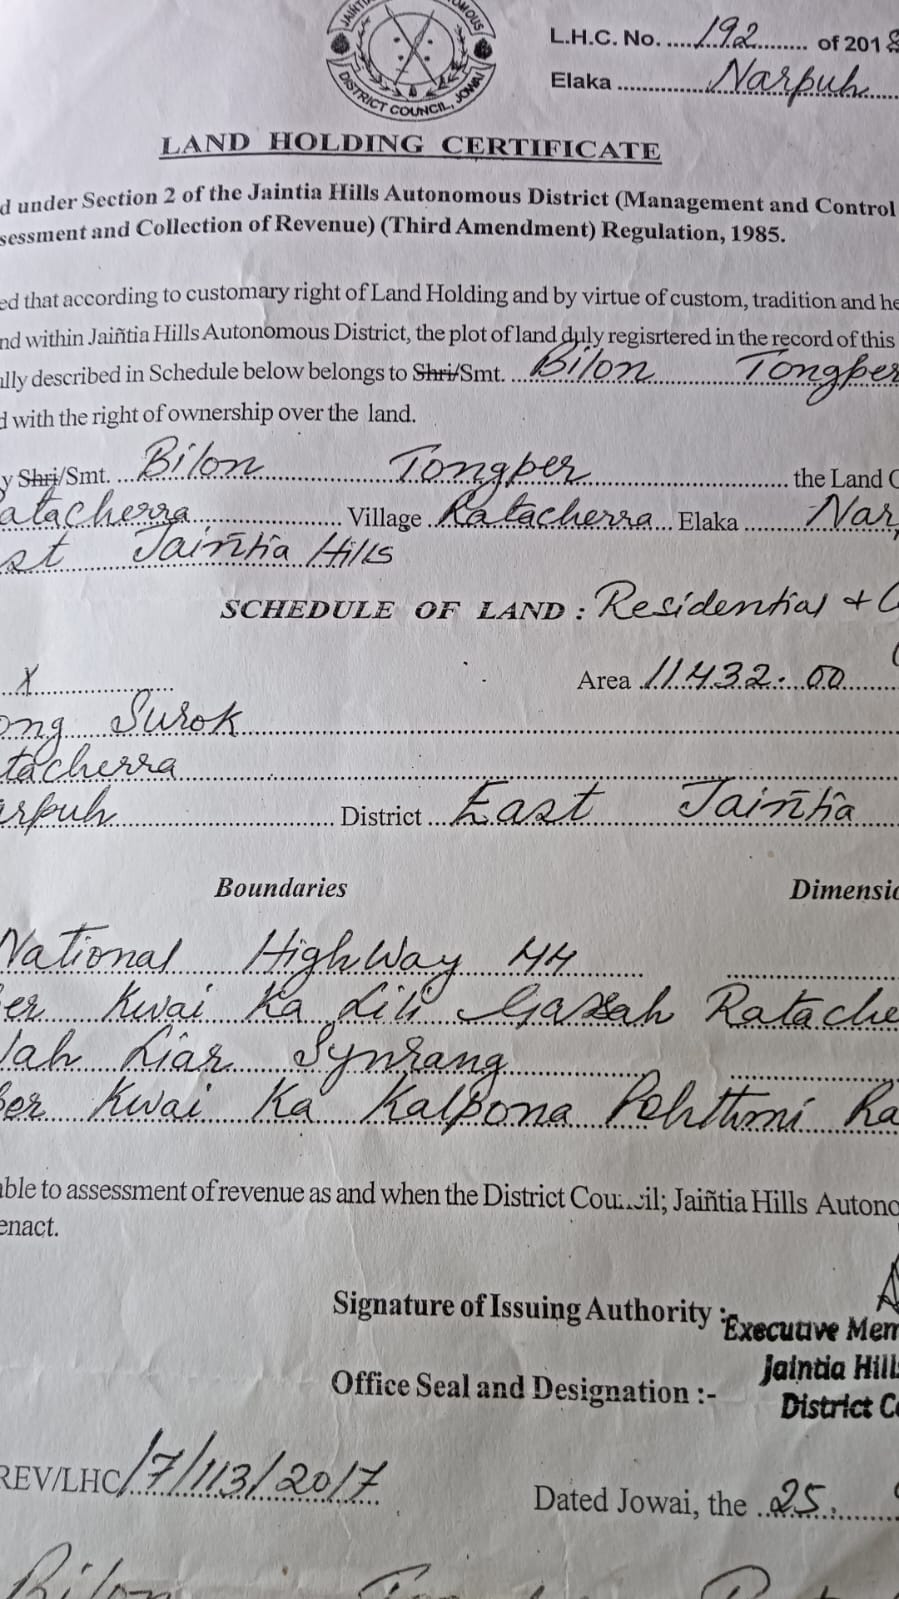 DISTRICT COUNCIL, JOWAI
L.H.C. No. 192 of 2018
Elaka Narpuh
LAND HOLDING CERTIFICATE
d under Section 2 of the Jaintia Hills Autonomous District (Management and Control
sessment and Collection of Revenue) (Third Amendment) Regulation, 1985.
ed that according to customary right of Land Holding and by virtue of custom, tradition and he
nd within Jaiñtia Hills Autonomous District, the plot of land duly regisrtered in the record of this
ully described in Schedule below belongs to Shri/Smt. Bilon Tongper
d with the right of ownership over the land.
y Shri/Smt. Bilon Tongper the Land
atacherra Village Ratacherra Elaka Nar
st Jaiñtia Hills
SCHEDULE OF LAND : Residential +
X Area 11432.00
ong Surok
tacherra
arpuh District East Jaiñtia
Boundaries Dimensio
National HighWay 44
er Kwai Ka Lili Gazah Ratache
Wah Liar Synrang
per Kwai Ka Kalpona Pohthmi Ra
able to assessment of revenue as and when the District Council; Jaiñtia Hills Autono
enact.
Signature of Issuing Authority :-
Executive Mem
Jaintia Hill
Office Seal and Designation :-
District C
REV/LHC/7/113/2017
Dated Jowai, the 25
Bilon